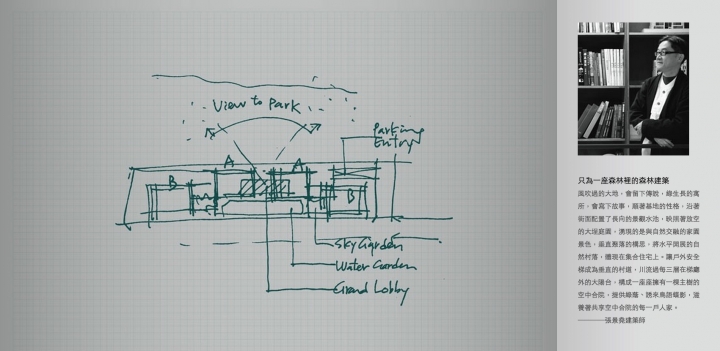 View to Park
Parking
Entry
A
A
B
B
Sky Garden
Water Garden
Grand Lobby
只為一座森林裡的森林建築
風吹過的大地，會留下傳說，綠生長的寓
所，會寫下故事，順著基地的性格，沿著
街面配置了長向的景觀水池，映照著放空
的大理庭園，湧現的是與自然交融的家園
景色，垂直聚落的構思，將水平開展的自
然村落，體現在集合住宅上。讓戶外安全
梯成為垂直的村道，川流過每三層在梯廳
外的大陽台，構成一座座擁有一棵主樹的
空中合院，提供綠蔭，誘來鳥語蝶影，滋
養著共享空中合院的每一戶人家。
————張景堯建築師